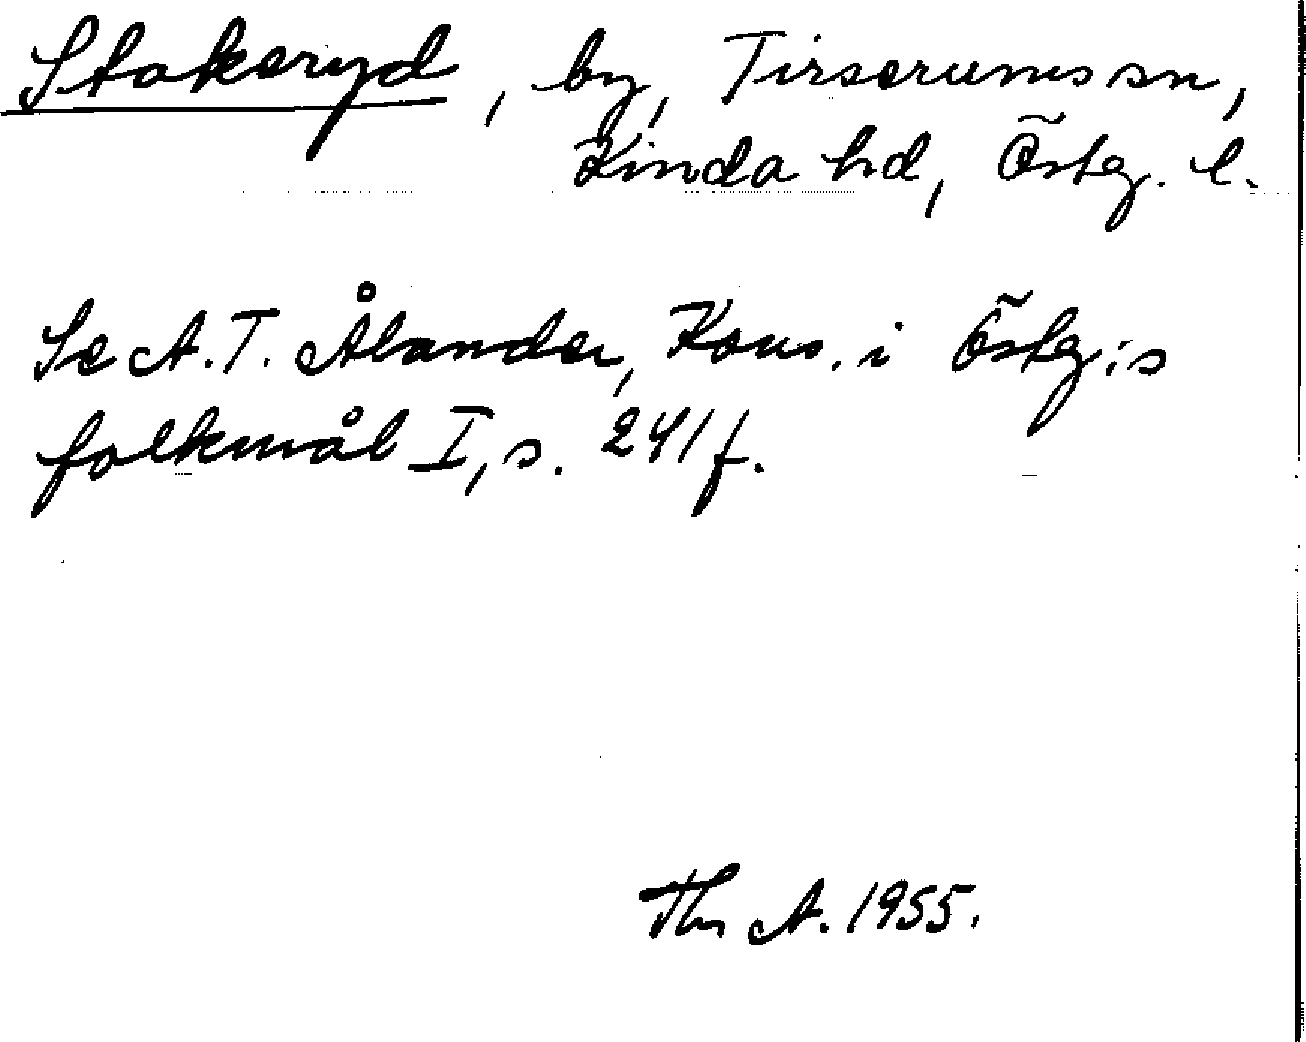 Stokeryd, by, Tirserums sn,
Kinda hd, Östg. l.
Se A.T. Ålander, Kons. i Östg:s
folkmål I, s. 241 f.
Th A. 1955.